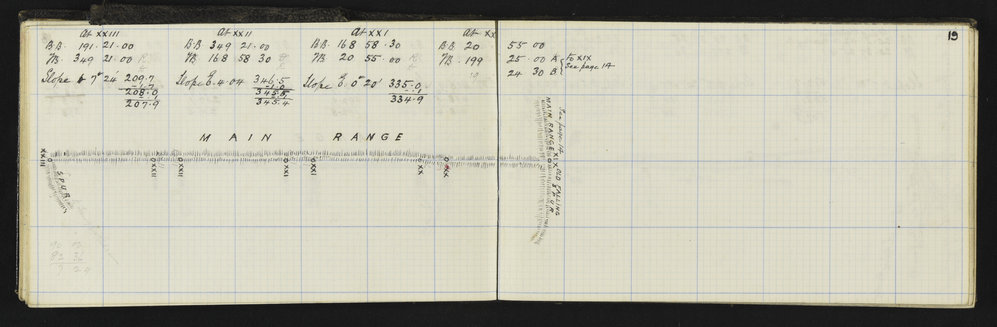 At XXIII
B.B. 191.21.00
F.B. 349 21.00
Slope 7° 24' 209.7
208.0
207.9
At XXII
B.B 349 21.00
F.B 168 58 30
Slope E. 4.04 346.5
345.5
345.4
At XXI
B.B 168 58.30
F.B 20 55.00
Slope E. 0° 20' 335.0
334.9
At XX
B.B 20 55 00
F.B. 199 25.00 A To XIX
24 30 B See page 14
19
MAIN RANGE
XXIII
XXII
XXII
XXI
XXI
XX
XX
SPUR
See page 14
MAIN RANGE
XIX
OLD FALLING